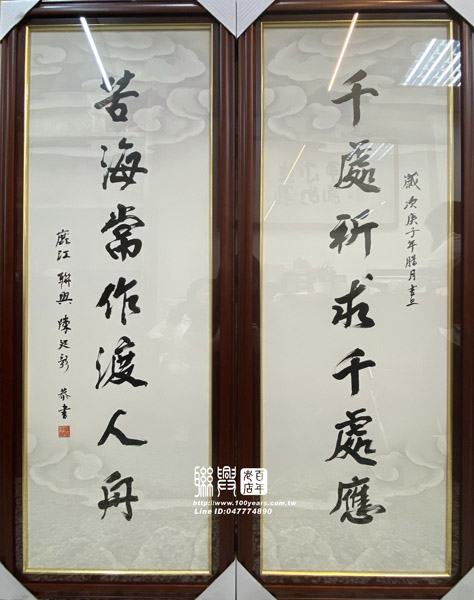 千處祈求千處應
歲次庚子年腊月吉旦
苦海常作渡人舟
鹿江 聯興 陳廷彰 恭書
聯興 百年老店
http://www.100years.com.tw
Line ID:047774890